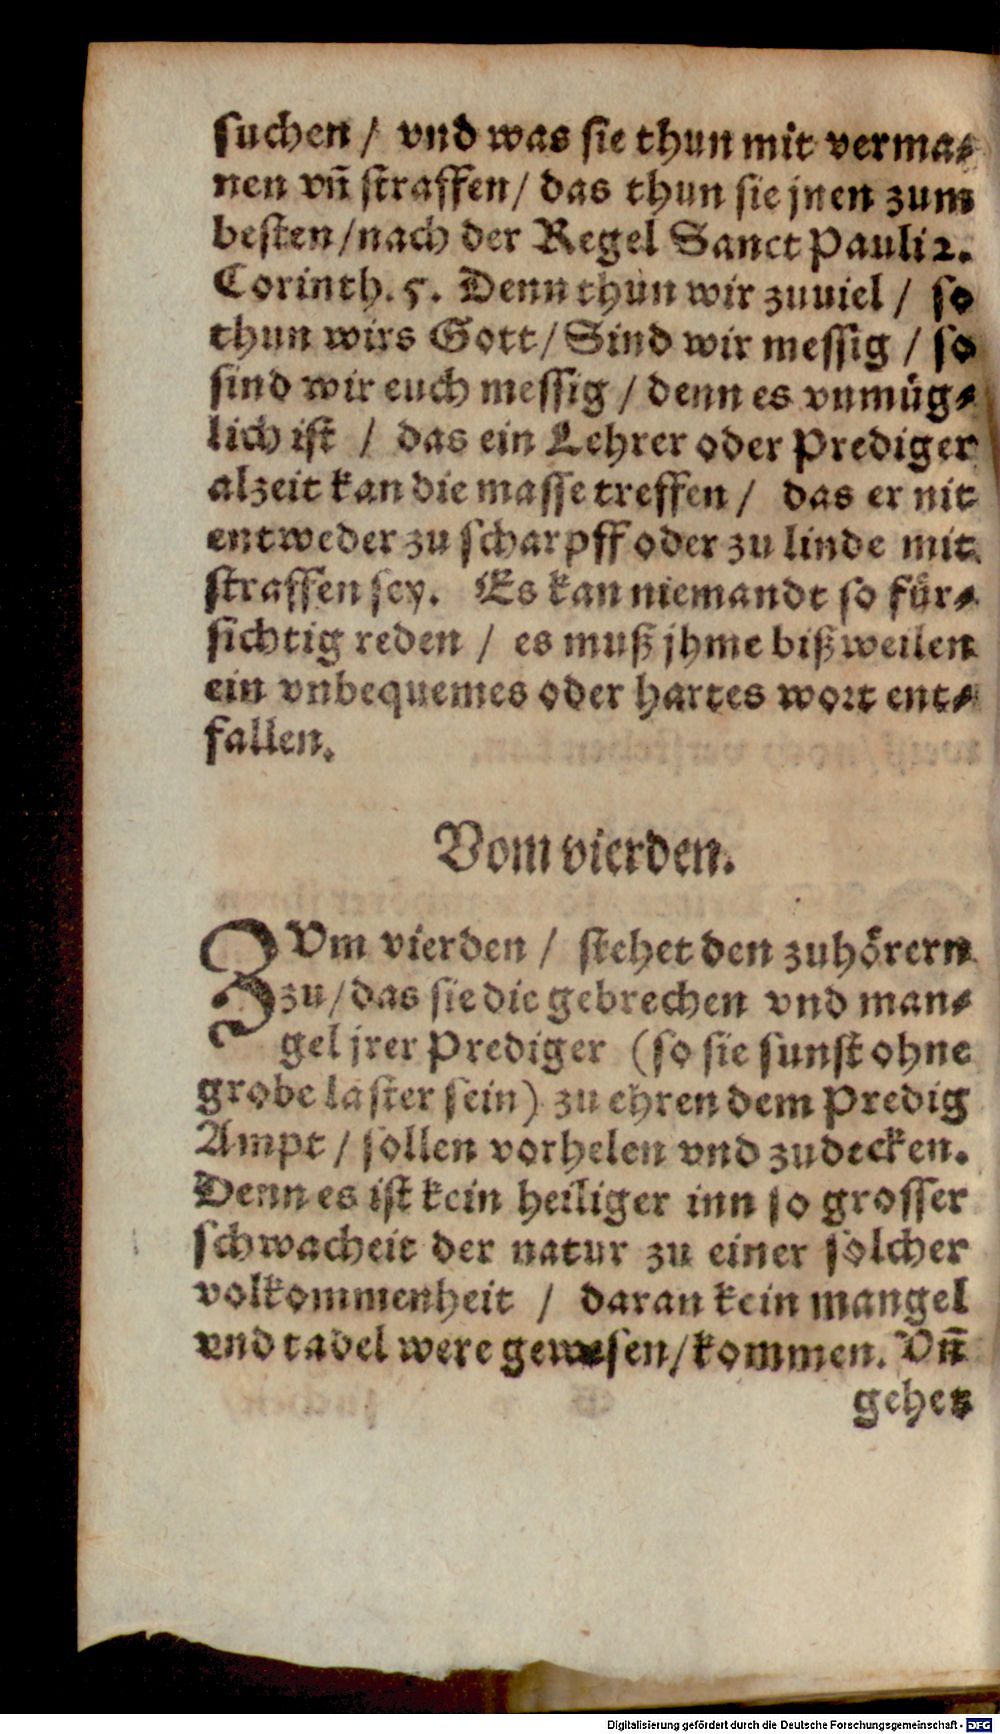 suchen / vnd was sie thun mit verma⸗
nen vñ straffen / das thun sie jnen zum
besten / nach der Regel Sanct Pauli 2.
Corinth. 5. Denn thun wir zuuiel / so
thun wirs Gott / Sind wir messig / so
sind wir euch messig / denn es vnmüg⸗
lich ist / das ein Lehrer oder Prediger
alzeit kan die masse treffen / das er nit
entweder zu scharpff oder zu linde mit
straffen sey. Es kan niemandt so für⸗
sichtig reden / es muß jhme bißweilen
ein vnbequemes oder hartes wort ent⸗
fallen.
Vom vierden.
ZVm vierden / stehet den zuhörern
zu / das sie die gebrechen vnd man⸗
gel jrer Prediger (so sie sunst ohne
grobe laster sein) zu ehren dem Predig
Ampt / sollen vorhelen vnd zudecken.
Denn es ist kein heiliger inn so grosser
schwacheit der natur zu einer solcher
volkommenheit / daran kein mangel
vnd tadel were gewesen / kommen. Vñ
gehet
Digitalisierung gefördert durch die Deutsche Forschungsgemeinschaft - DFG